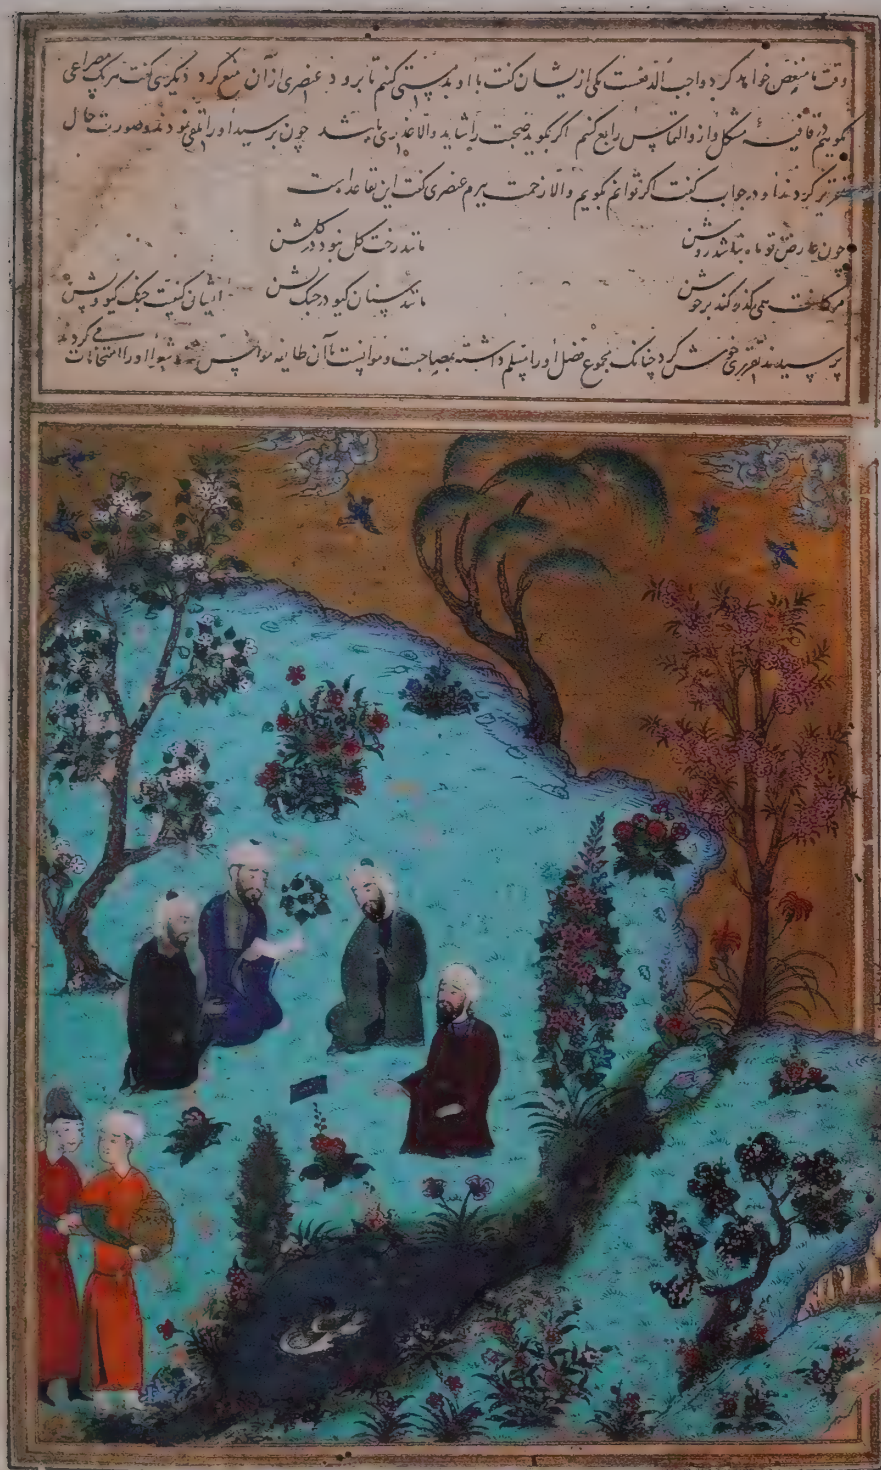 وقت ما منغص خواهد کرد و واجب الدفعست یکی از یشان کفت با او بدمستی کنیم تا برود عنصری از آن منع کرد دیکری کفت هر یک مصراعی
بکوییم در قافیه مشکل و ازو التماس رابع کنیم اکر بکوید صحبت را شاید و الا عذری باشد چون برسید او را تلقی نمودند و صورت حال
تقریر کردند او در جواب کفت اکر توانم بکویم و الا زحمت ببرم عنصری کفت این قاعده است
چون عارض تو ماه نباشد روشن مانند رخت کل نبود در کلشن
مژکانت همی کذر کند بر جوشن مانند سنان کیو در جنک پشن ایشان کیفیت جنک کیو و پشن
پرسیدند تقریری خوش کرد چنانک مجموع فضل او را مسلم داشتند بمصاحبت و موانست با آن طایفه شعرا او را امتحانات می کردند